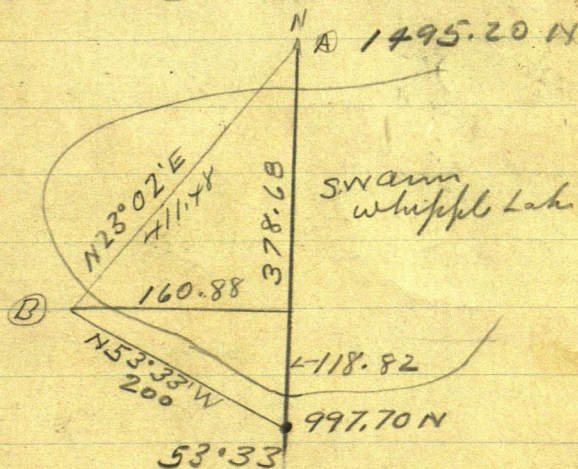 N
A 1495.20 N
N23°02'E
411.48
378.68
Swann
Whipple Lake
160.88
B
118.82
N53°33'W
200
997.70 N
53°33